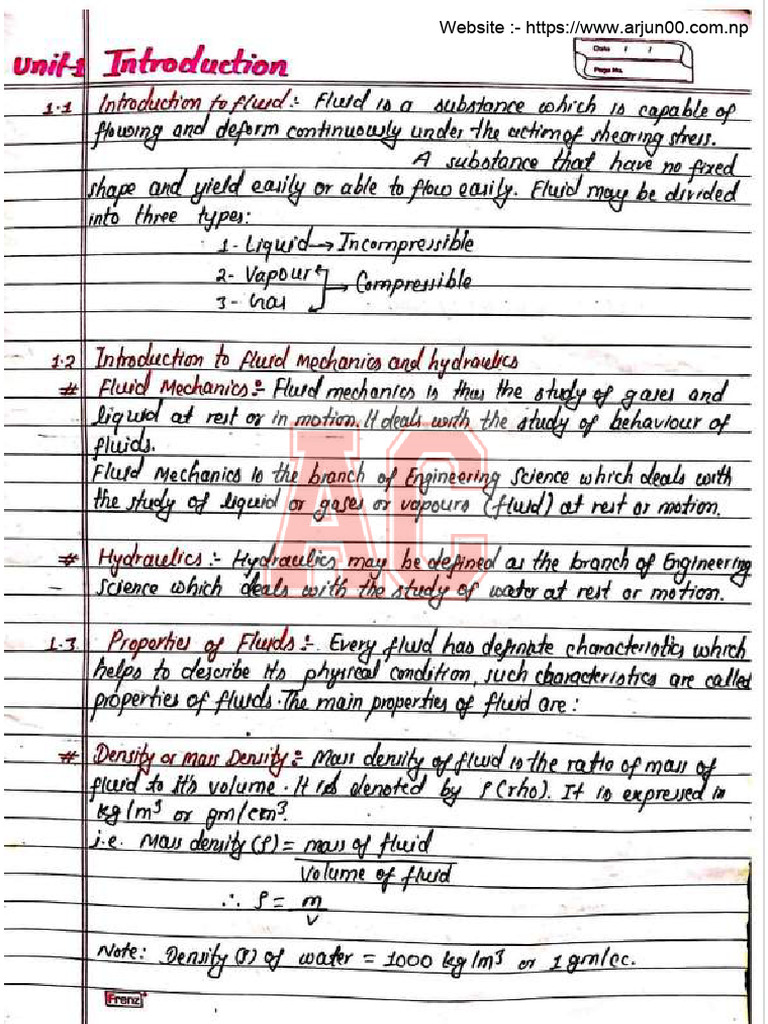 Website :- https://www.arjun00.com.np
Date / /
Page No.
Unit-1 Introduction
1.1 Introduction to fluid:- Fluid is a substance which is capable of
flowing and deform continuously under the action of shearing stress.
A substance that have no fixed
shape and yield easily or able to flow easily. Fluid may be divided
into three types:
1- Liquid → Incompressible
2- Vapour
→ Compressible
3- Gas
1.2 Introduction to fluid mechanics and hydraulics
# Fluid Mechanics:- Fluid mechanics is thus the study of gases and
liquid at rest or in motion. It deals with the study of behaviour of
fluids.
Fluid Mechanics is the branch of Engineering Science which deals with
the study of liquid or gases or vapours (fluid) at rest or motion.
# Hydraulics:- Hydraulics may be defined as the branch of Engineering
Science which deals with the study of water at rest or motion.
1.3. Properties of Fluids:- Every fluid has definate characteristics which
helps to describe its physical condition, such characteristics are called
properties of fluids. The main properties of fluid are:
# Density or mass Density:- Mass density of fluid is the ratio of mass of
fluid to it's volume. It is denoted by ρ (rho). It is expressed in
kg/m³ or gm/cm³.
i.e. Mass density (ρ) = mass of fluid
Volume of fluid
∴ ρ = m
v
Note: Density (ρ) of water = 1000 kg/m³ or 1 gm/cc.
Frenz
AC